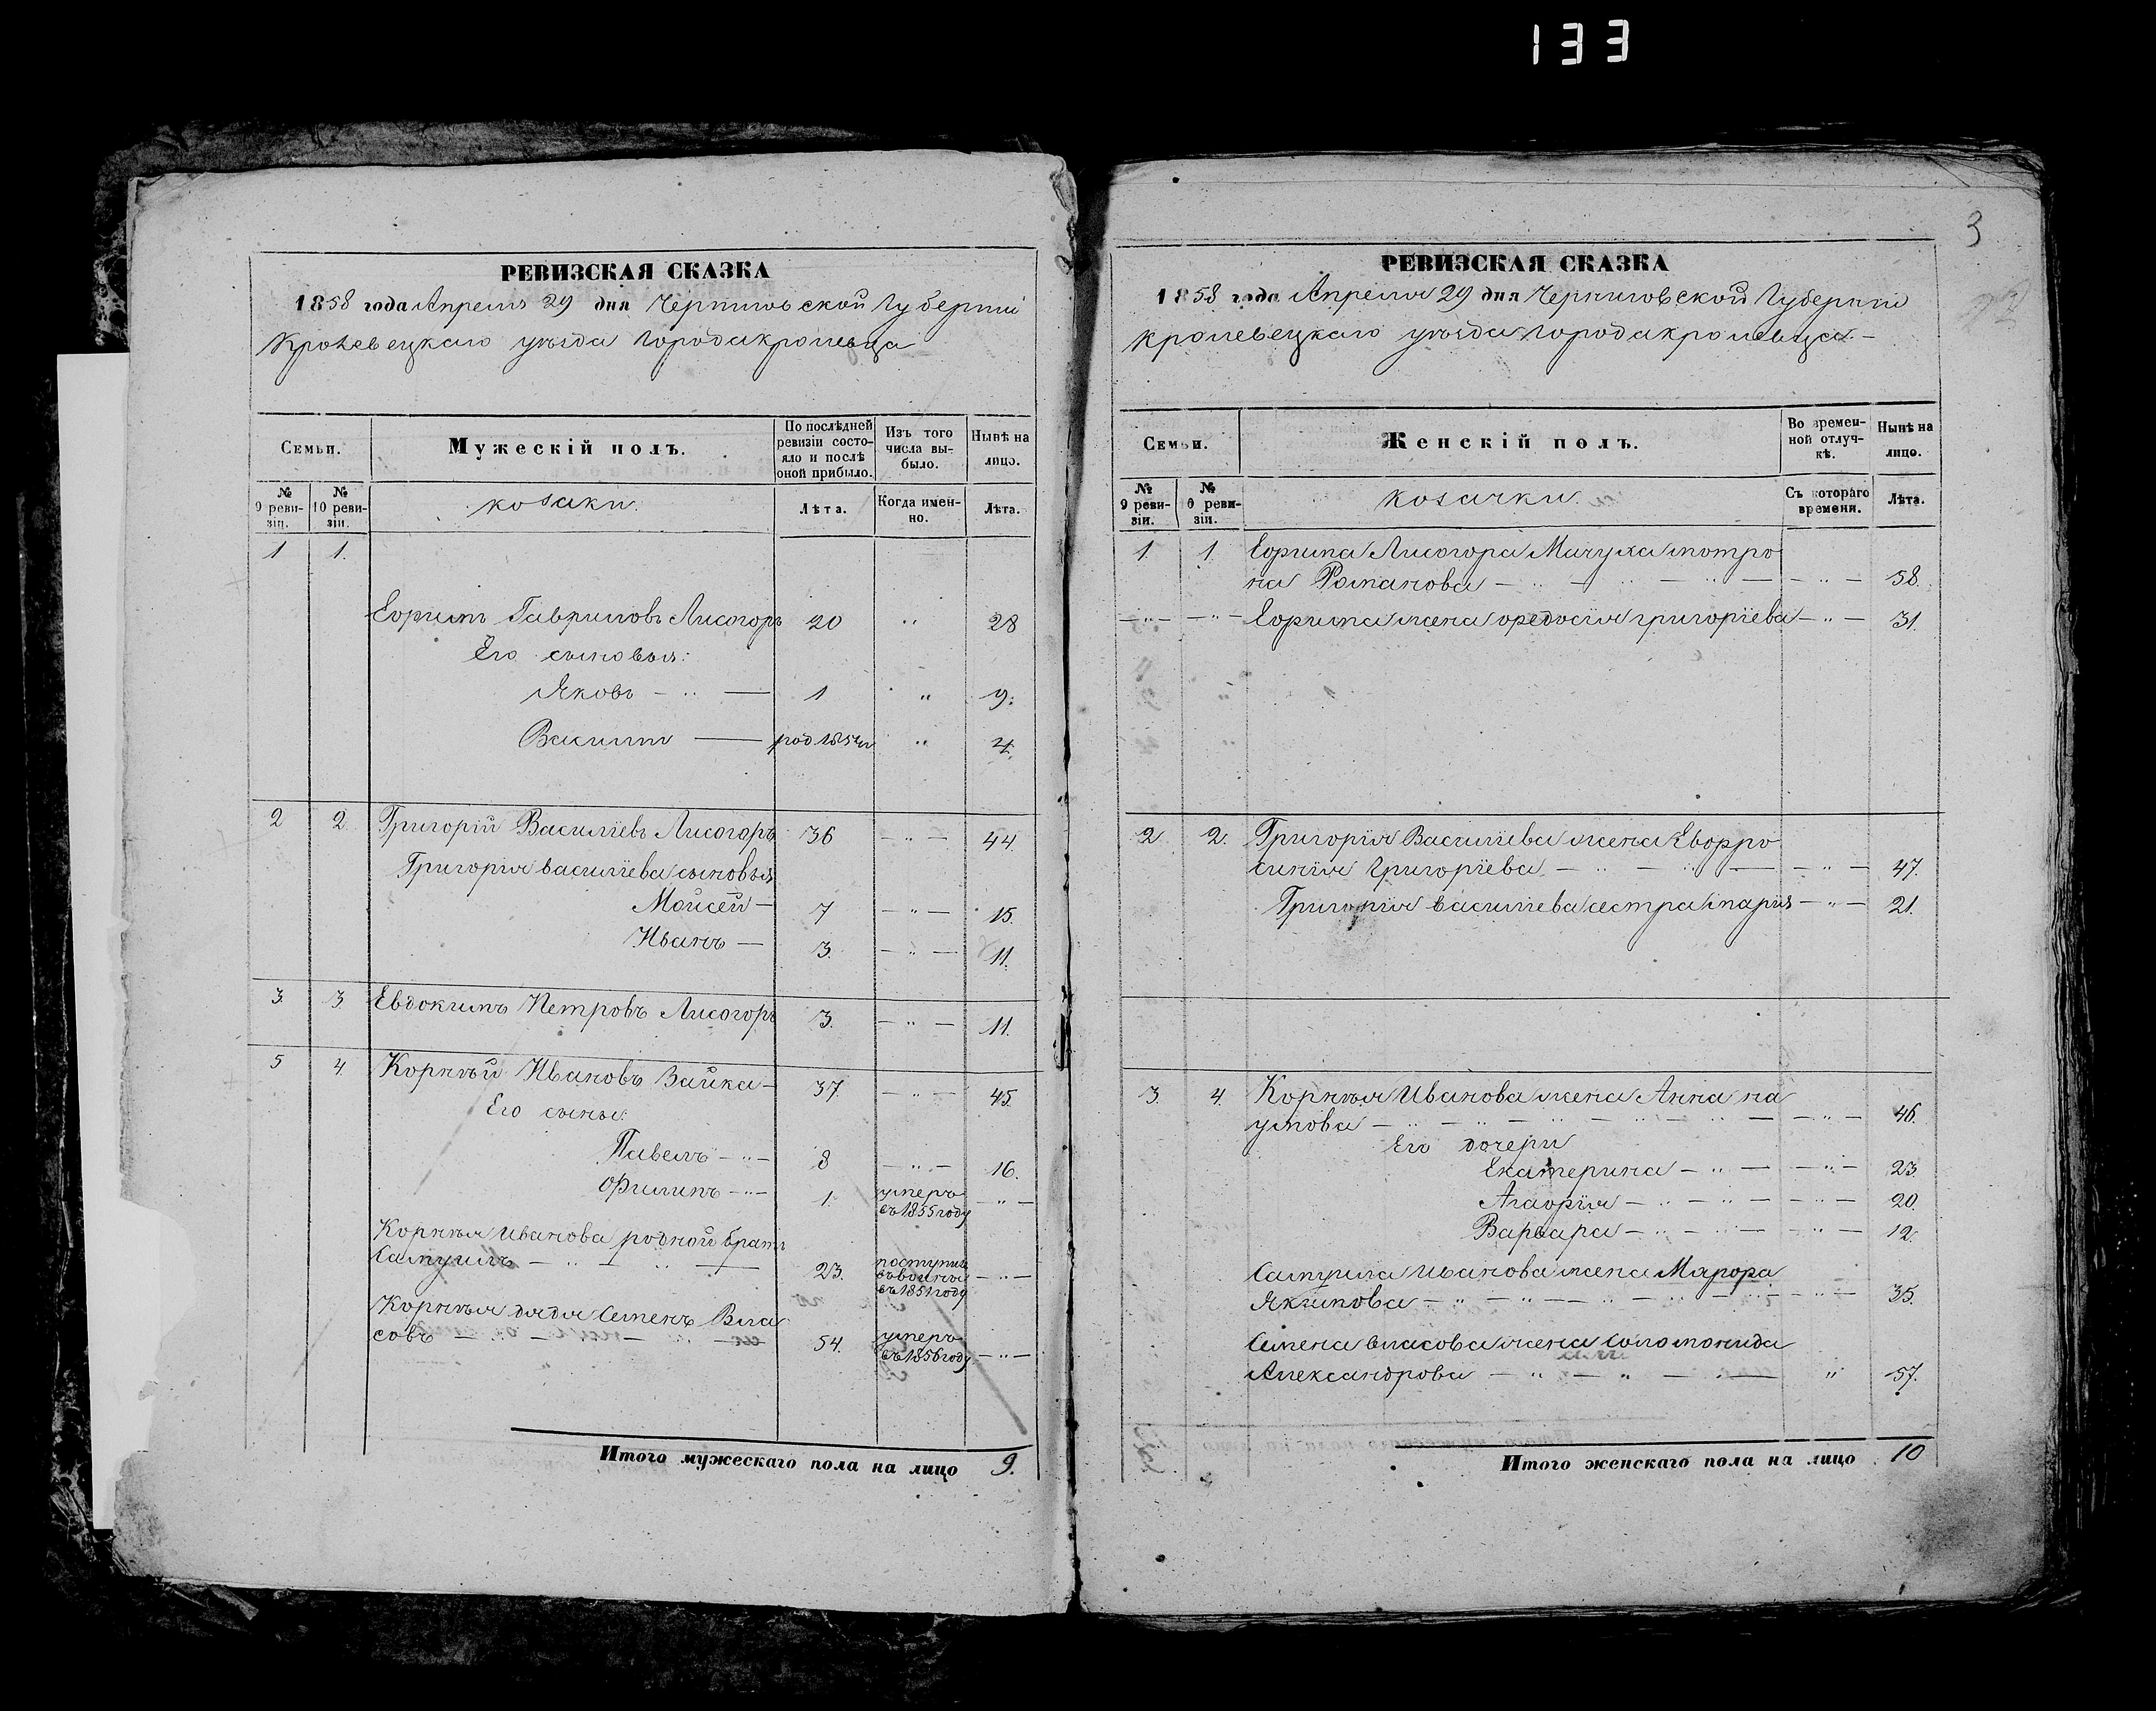 133
РЕВИЗСКАЯ СКАЗКА
1858 года Апреля 29 дня Черниговской Губернiи
Кролевецкаго уѣзда Города кролевца
Семьи.
Мужескій полъ.
По послѣдней ревизіи состояло и послѣ оной прибыло.
Изъ того числа выбыло.
Нынѣ на лицо.
№ 9 ревизіи.
№ 10 ревизіи.
козаки.
Лѣта.
Когда именно.
Лѣта.
1 1.
Ефримъ Гавриловъ Лисогоръ 20 " 28
Его сыновья:
Яковъ — " — 1 " 9.
род. 1854 " 4.
2 2 Григорій Василіевъ Лисогоръ 36 — " — 44
Григорія василіева сыновья
Мойсей — 7 — " — 15.
Иванъ — 3. — " — 11.
3 3. Евдокимъ Петровъ Лисогоръ 3. — " — 11.
5 4. Корнѣй Ивановъ Зайка — 37. — " — 45.
Его сыны:
Павелъ — " — 8 — " — 16.
Филипъ — " — 1. умеръ въ 1855 году — " —
Корнѣя Иванова родной братъ
Самуилъ — " — " — 23. поступил въ въ 1851 году — " —
Корнѣя дядя Семенъ Вла
совъ — " — 54. умеръ въ 1856 году — " —
Итого мужескаго пола на лицо 9.
3
РЕВИЗСКАЯ СКАЗКА
1858 года Апреля 29 дня Черниговской Губернiи
кролевецкаго уѣзда города кролевца —
Семьи.
Женскій полъ.
Во временной отлучкѣ.
Нынѣ на лицо.
№ 9 ревизіи.
№ 0 ревизіи.
козачки.
Съ котораго времени.
Лѣта.
1. 1. Ефрима Лисогора Мачуха мотро
на Романова — " — " — " — — " — 58.
— " — — " — Ефрима жена федосія григоріева — " — 31.
2. 2. Григорія Василіева жена Евфро
синія Григоріева — " — " — — " — 47.
Григорія василіева сестра марія — " — 21.
3. 4. Корнѣя Иванова жена Анна на
умова — " — " — " — " — " — — " — 46.
Его дочери
Екатерина — " — — " — 23.
Агафія — " — " — — " — 20.
Варвара — " — " — — " — 12.
Самуила Иванова жена Марфа
Якимова — " — " — " — " — — " — 35.
Семена власова жена Соломонида
Александрова — " — " — " 57.
Итого женскаго пола на лицо 10